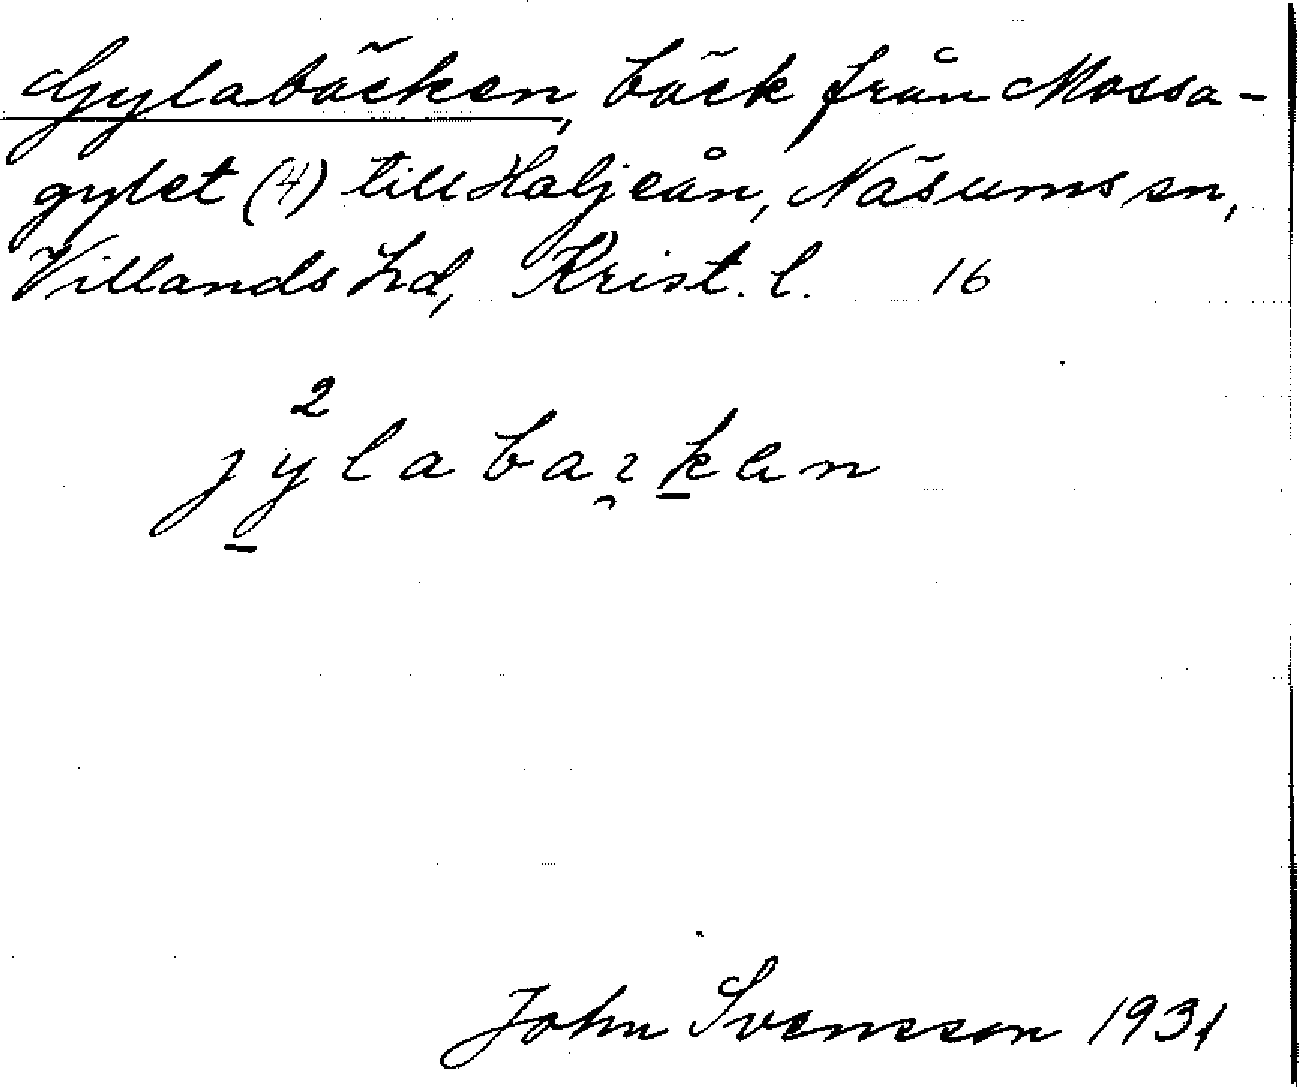 Gylabäcken, bäck från Mossa-
gylet (4) till Haljeån, Näsums sn,
Villands hd, Krist. l. 16
John Svensson 1931